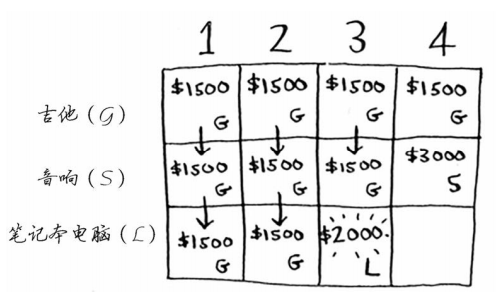 1 2 3 4
吉他(G) $1500 G $1500 G $1500 G $1500 G
音响(S) $1500 G $1500 G $1500 G $3000 S
笔记本电脑(L) $1500 G $1500 G $2000 L